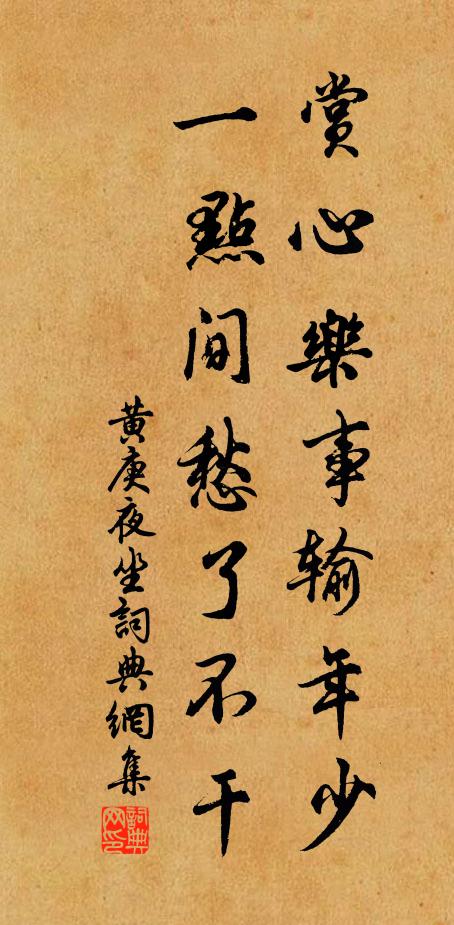 賞心樂事输年少
一點间愁了不干
黄庚夜坐詞典網集
詞典网印